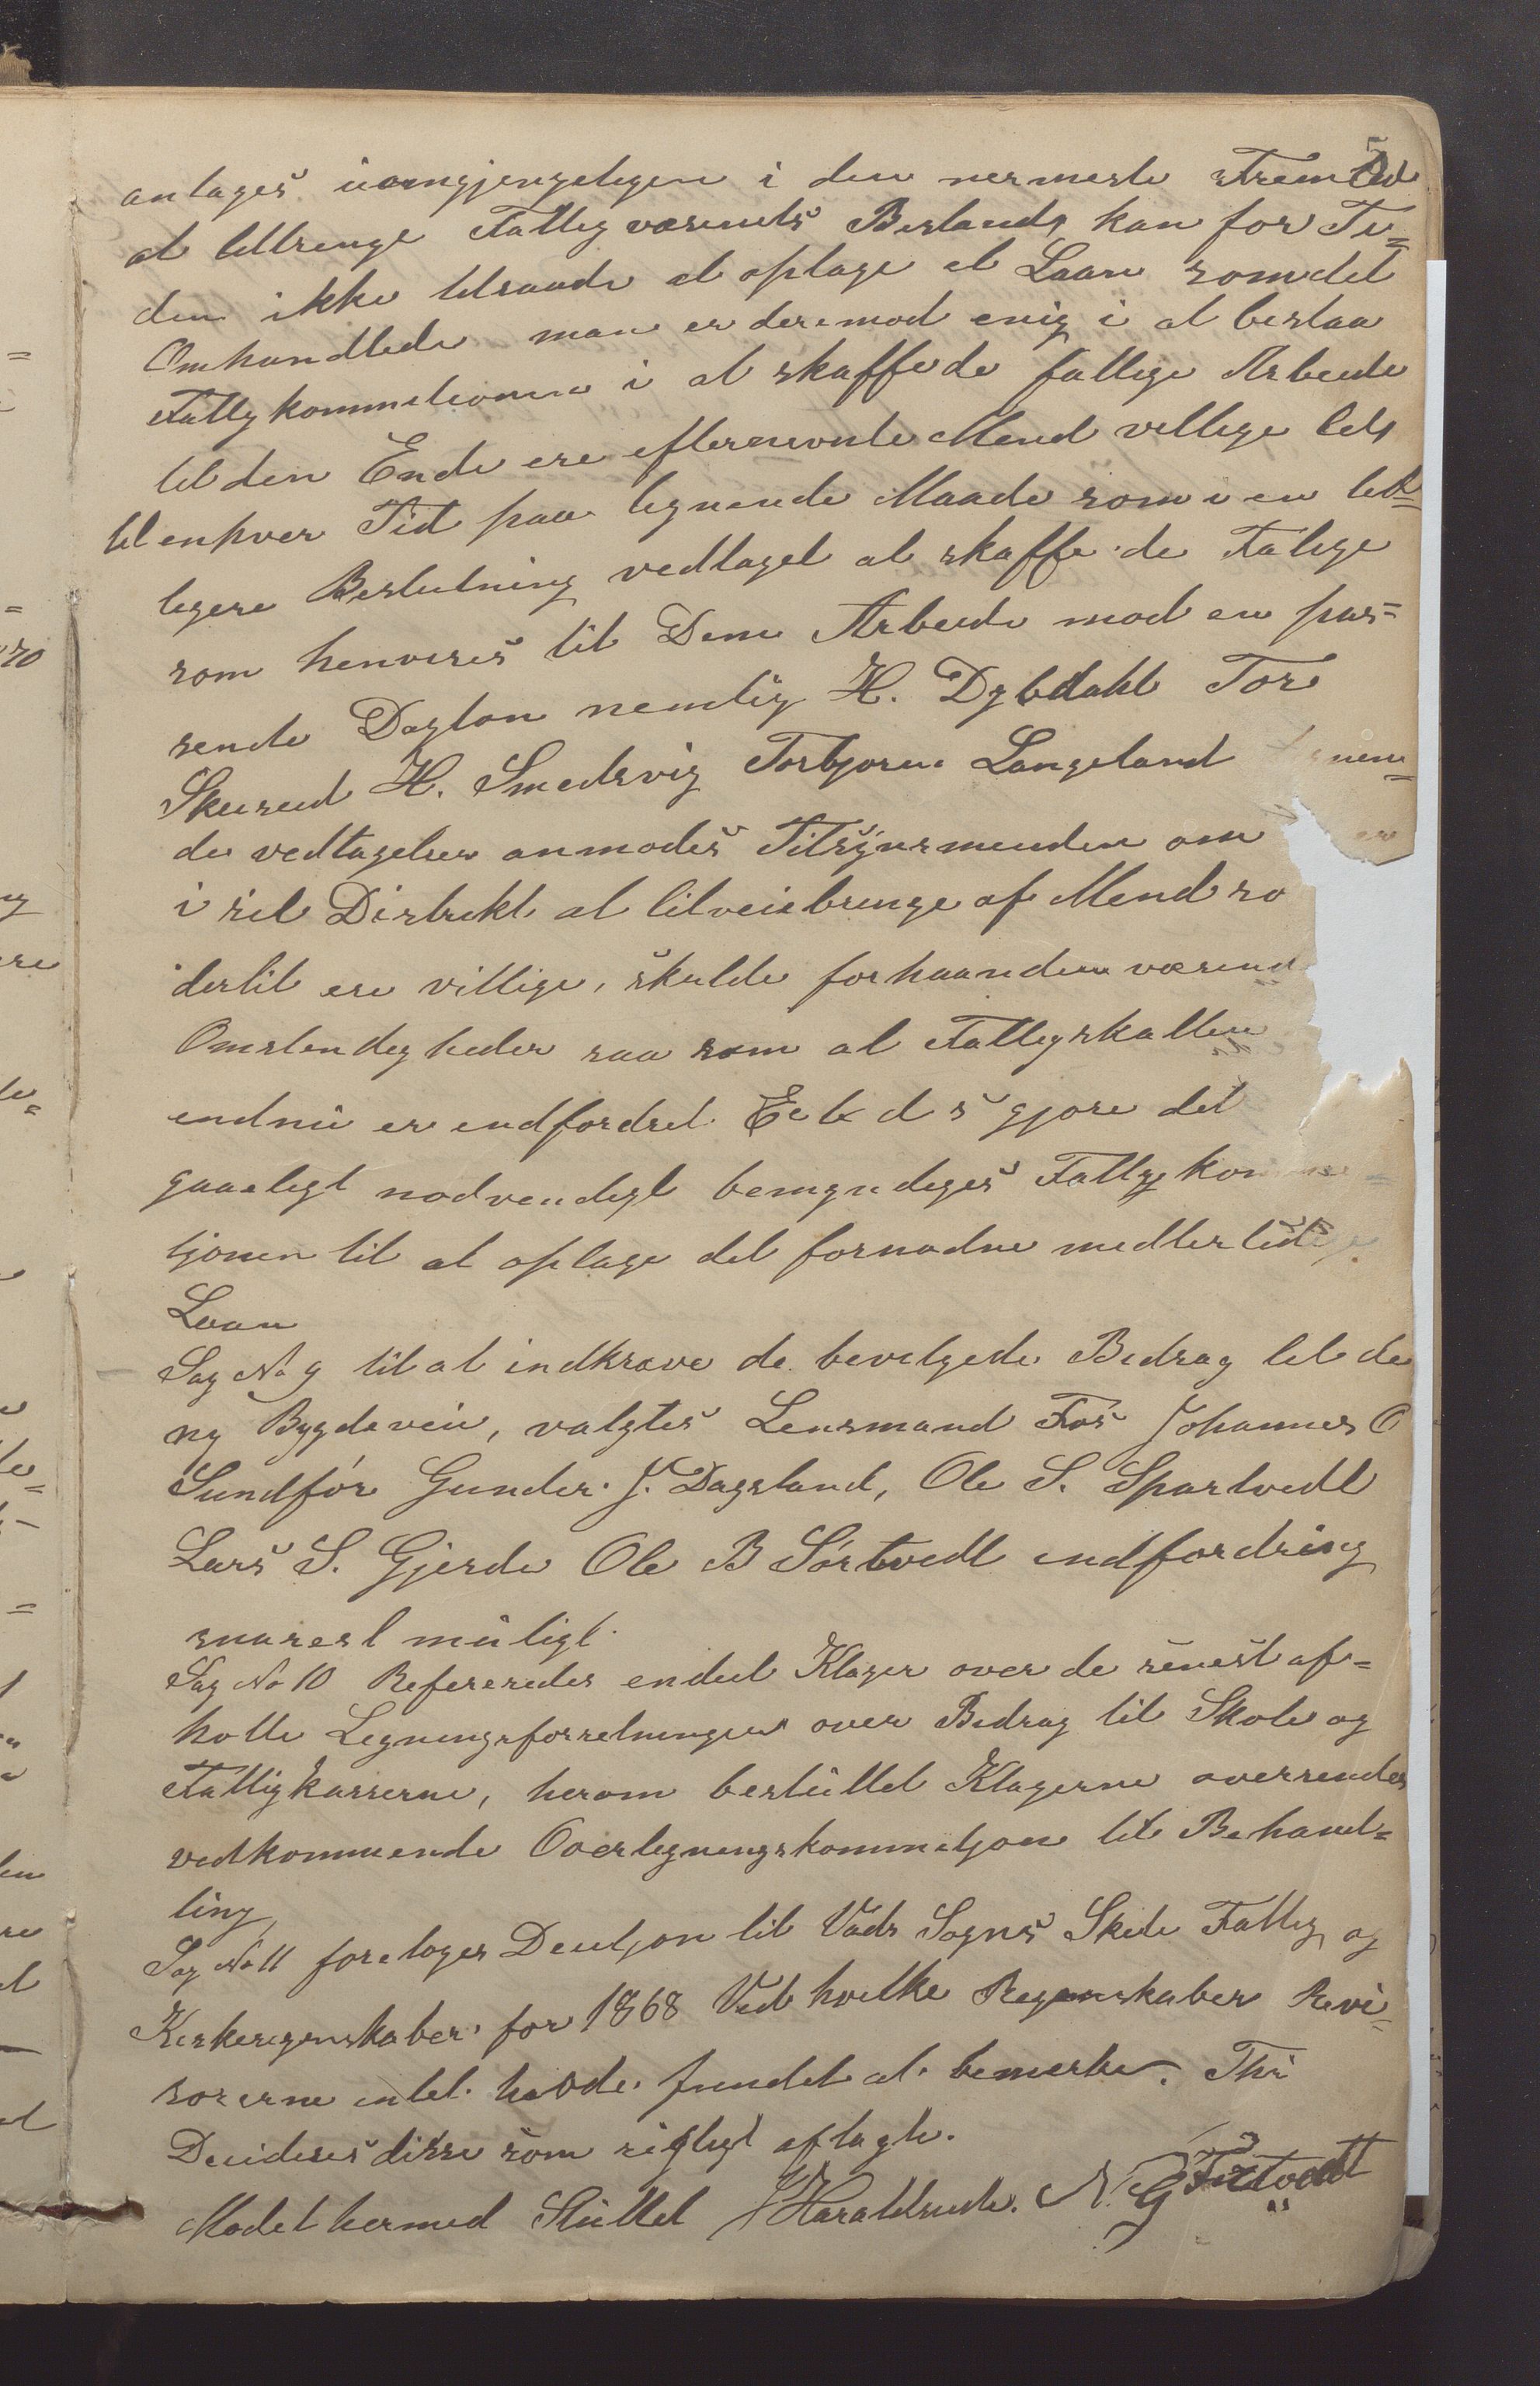 5
antages uomgjengeligen i den nermeste Fremtid
at tiltrenge Fattigvæsenets Bestand, kan for Ti=
den ikke tilraade at optage et Laan som det
Omhandlede man er deremod enig i at bestaa
Fattigkommitionen i at skaffe de fattige Arbeide
til den Ende ere efternevnte Mend villige til
til enhver Tid paa lignende Maade som i en tid=
ligere Beslutning vedtaget at skaffe de Fatige
som henvises til Dem Arbeide mod en pas=
sende Daglon nemlig H. Dybdahl Tore
Skeiseid H. Smedsvig Torbjorn Langeland nen=
de vedtagelser anmodes Tilsynsmenden om
i sit Distrikt at tilveiebringe af Mend so
dertil ere villige, skulde forhaanden værend
Omstendigheder saa som at Fattigskatten
endnu er indfordret. Et d s gjore det
gaaeligt nodvendigt bemyndiges Fattigkom
tjonen til at optage det fornodne medlertidige
Laan
Sag No 9 til at indkræve de bevilgede Bidrag til de
ny Bygdeveie, valgtes Lensmand Fos Johannes O
Sundfør Gunder J. Dagsland, Ole S. Spartvedt
Lars S. Gjerde Ole B Sørtvedt indfordring
snarest muligt.
Sag No 10 Refereredes endeel Klager over de senest af=
holte Legningsforretninger over Bidrag til Skole og
Fattigkasserne, herom besluttet Klagerne oversendes
vedkommende Overlegningskommitjon til Behand=
ling,
Sag No 11 foretoges Decitjon til Vads Sogns Skole Fattig og
Kirkeregnskaber for 1868 Ved hvilke Regenskaber Revi=
sorerne intet havde fundet at bemerke. Thi
Decideres disse som rigtigt aflagte.
Modet hermed Sluttet Haraldseide. N. G Førtvedt